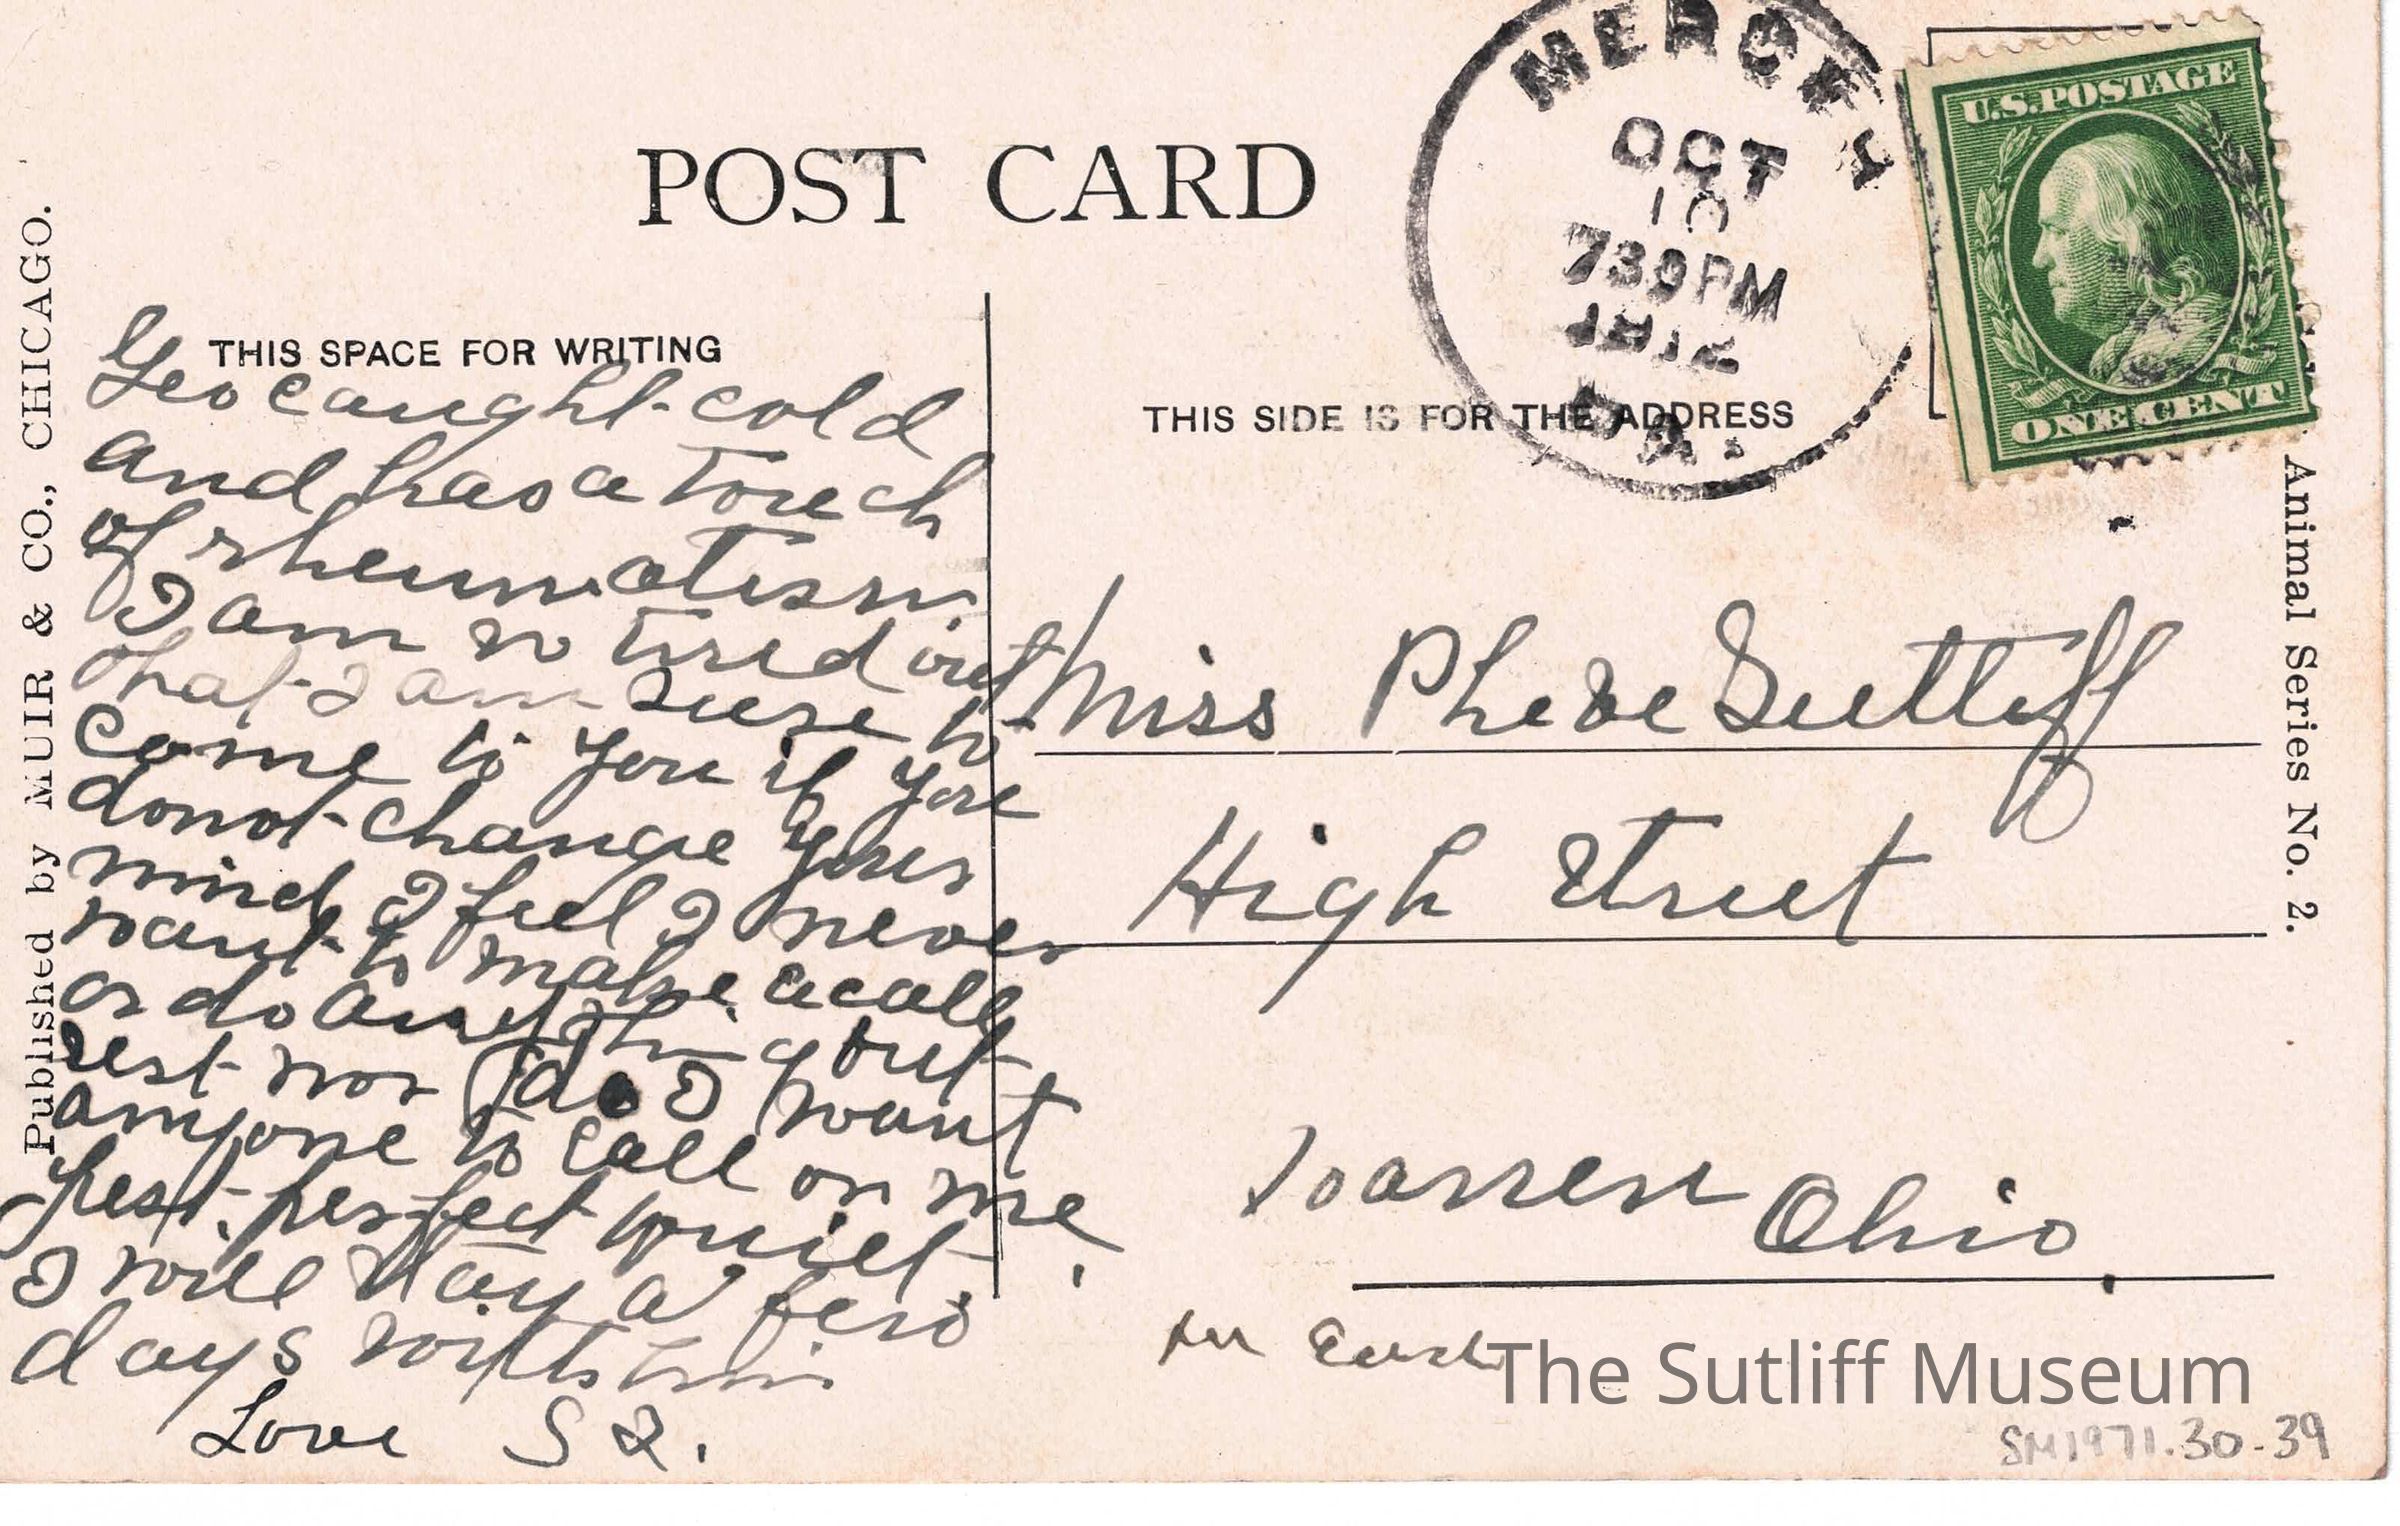 POST CARD
MERCER
OCT
10
730PM
1912
PA.
U.S.POSTAGE
ONE CENT
THIS SPACE FOR WRITING
THIS SIDE IS FOR THE ADDRESS
Geo caught cold
and has a touch
of rheumatism.
I am so tired out
that I am sure to
come to you if you
donot change your
mind I feel I never
want to make a call
or do anything but
rest nor do I want
anyone to call on me
Rest. perfect quiet.
I will stay a few
days with him
Love S
Miss Phebe Sutliff
High Street
Warren Ohio.
The Sutliff Museum
SM1971.30-39
Published by MUIR & CO., CHICAGO.
Animal Series No. 2.